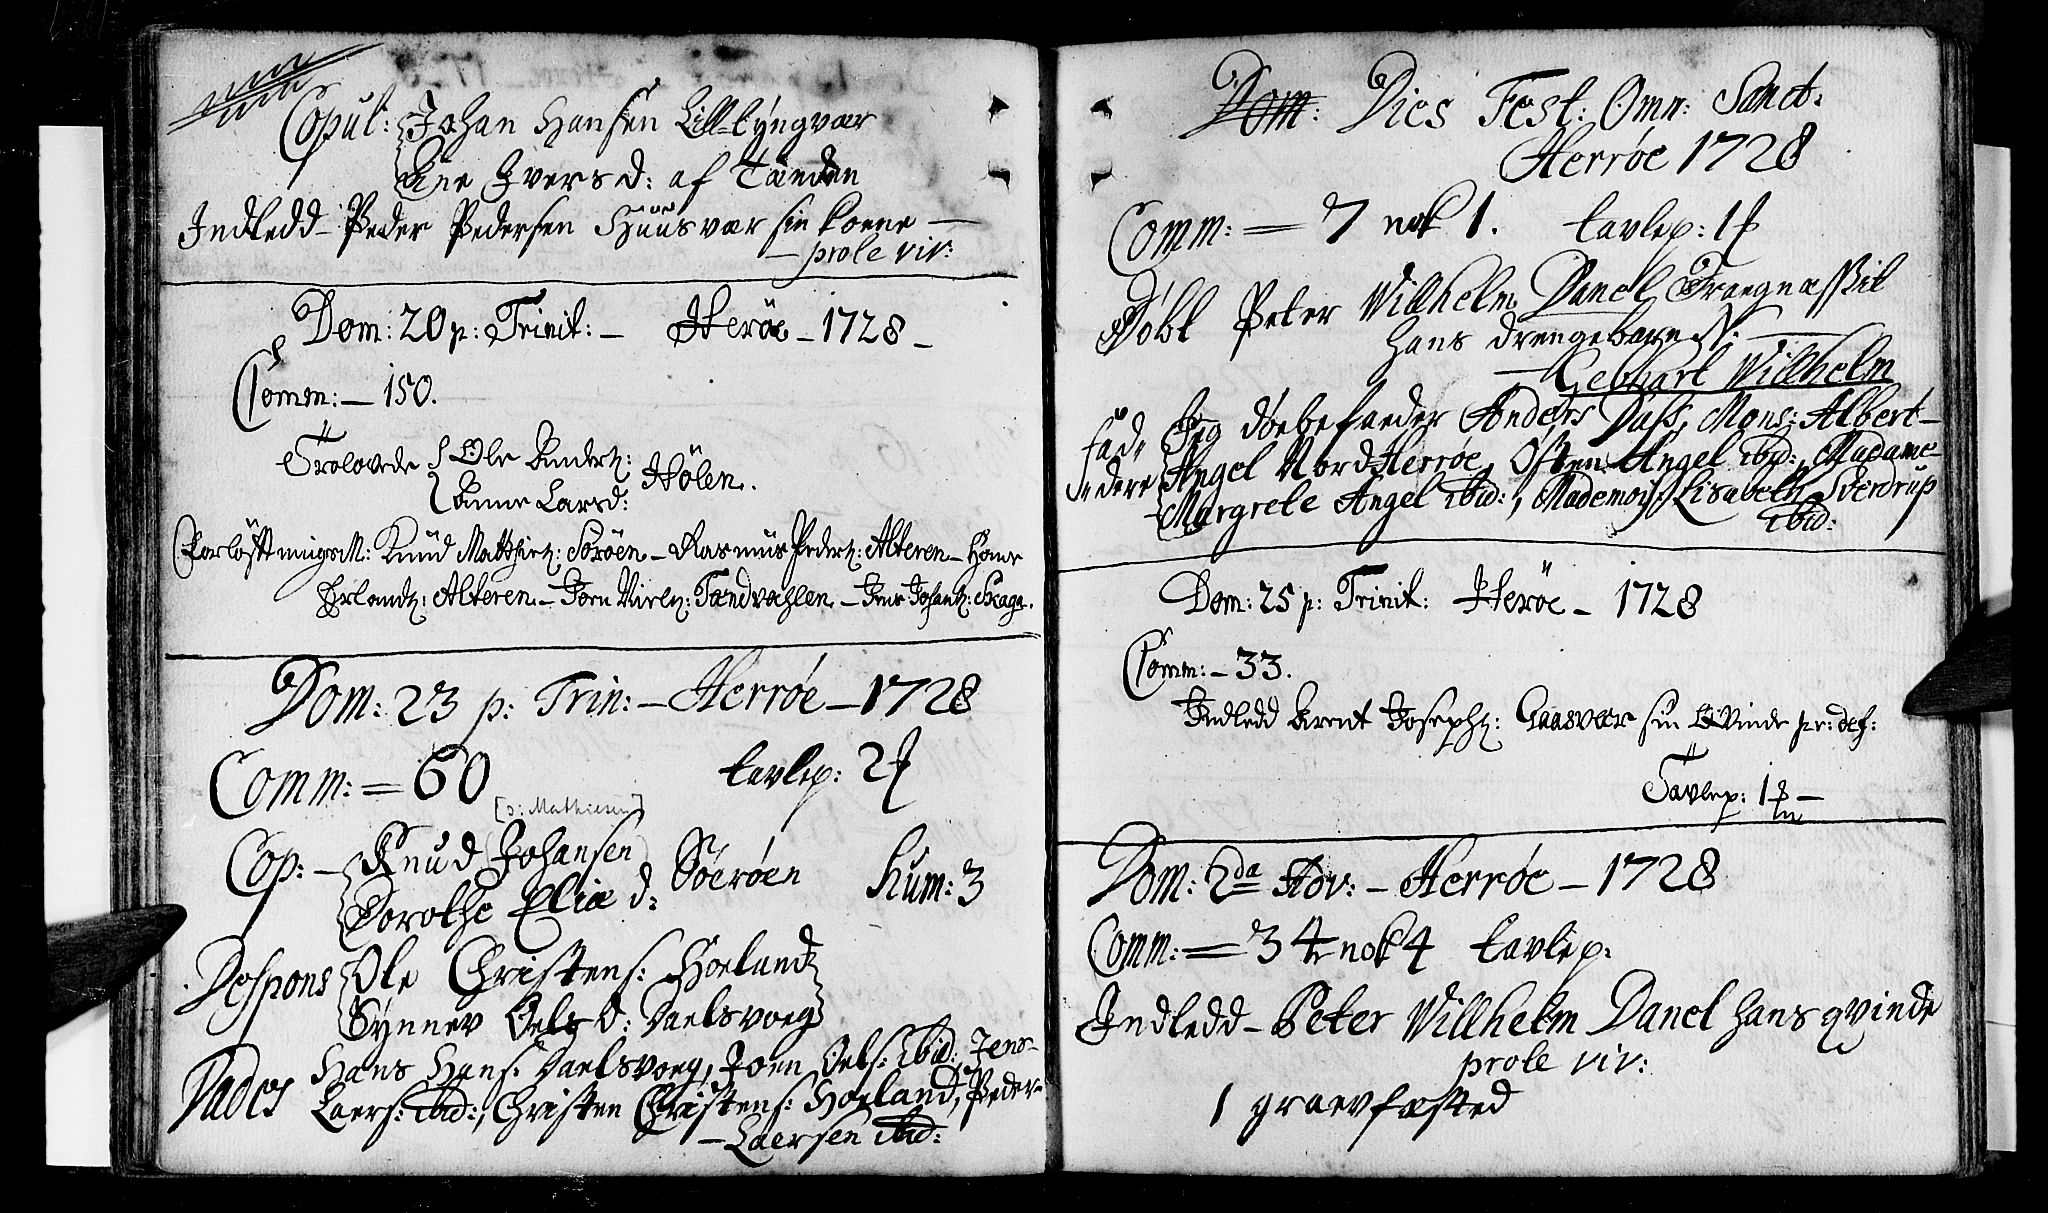 Copul: Johan Hansen Lill-Lyngvær
Ane Ivers d: af Tänden
Indledd - Peder Pedersen Huusvær sin kone -
- prole viv:
Dom: 20 p: Trinit: - Herröe - 1728 -
Comm: - 150.
Trolovede Ole Anders: Hölen.
Anne Larsd:
Forlöftningsm: Knud Matthis: Söröen - Rasmus Peders: Alteren - Hans
Erlands: Alteren - Jörn Niels: Tandvahlen - Jens Johans: Skaga.
Dom: 23 p: Trin: - Herröe - 1728
Comm: = 60 tavlep: 2
[o: Mathiesen]
Cop: - Knud Johansen Söeröen Kum: 3
Dorothe Eliæ d:
Despons Ole Christens: Hoeland
Synnev Oels D: Daelsvoeg
Vades Hans Hans: Daelsvoeg, Joen Oels: ibid: Jens -
Laers: ibid:, Christen Christens: Hoeland, Peder -
- Laersen ibid:
Dom: Dies Fest: Omn: Sanct:
Herröe 1728
Comm: = 7 nok 1. tavlep: 1
Döbt Peter Willhelm Danel
hans drengebarn N: -
- Gebhart Willhelm
fad- Jeg döbefaeder Anders Dass, Mons: Albert -
dere Angel Nord Herröe, Osten Angel ibid:, Madame
Margrete Angel ibid:, Mademois: Lisabeth Sverdrup
ibid:
Dom: 25 p: Trinit: Heröe - 1728
Comm: - 33.
Indledd Arent Josephs: Gaasvær sin Qvinde pr: def:
Tavlep: 1 -
Dom: 2da Adv: - Herröe - 1728
Comm: = 34 nok 4 tavlep:
Indledd - Peter Willhelm Danel hans qvinde
prole viv:
1 graevfæsted